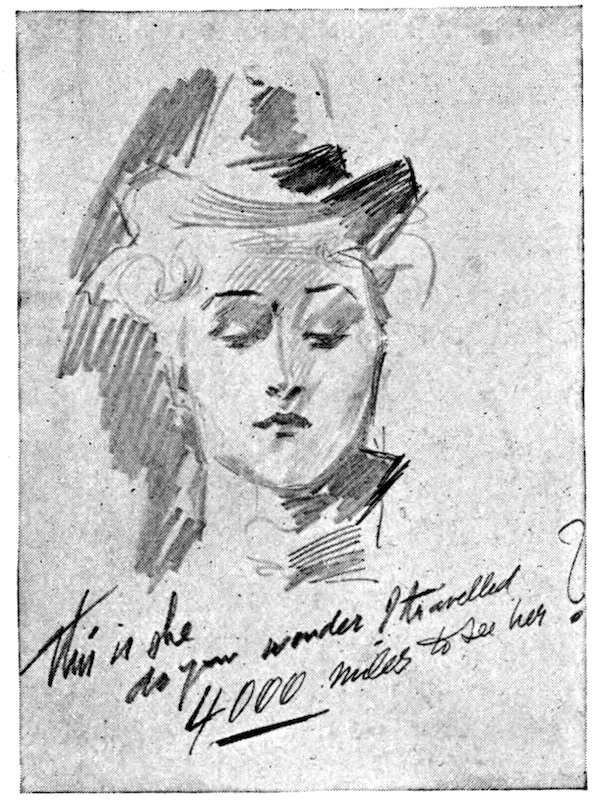 This is she
do you wonder I travelled
4000 miles to see her ?